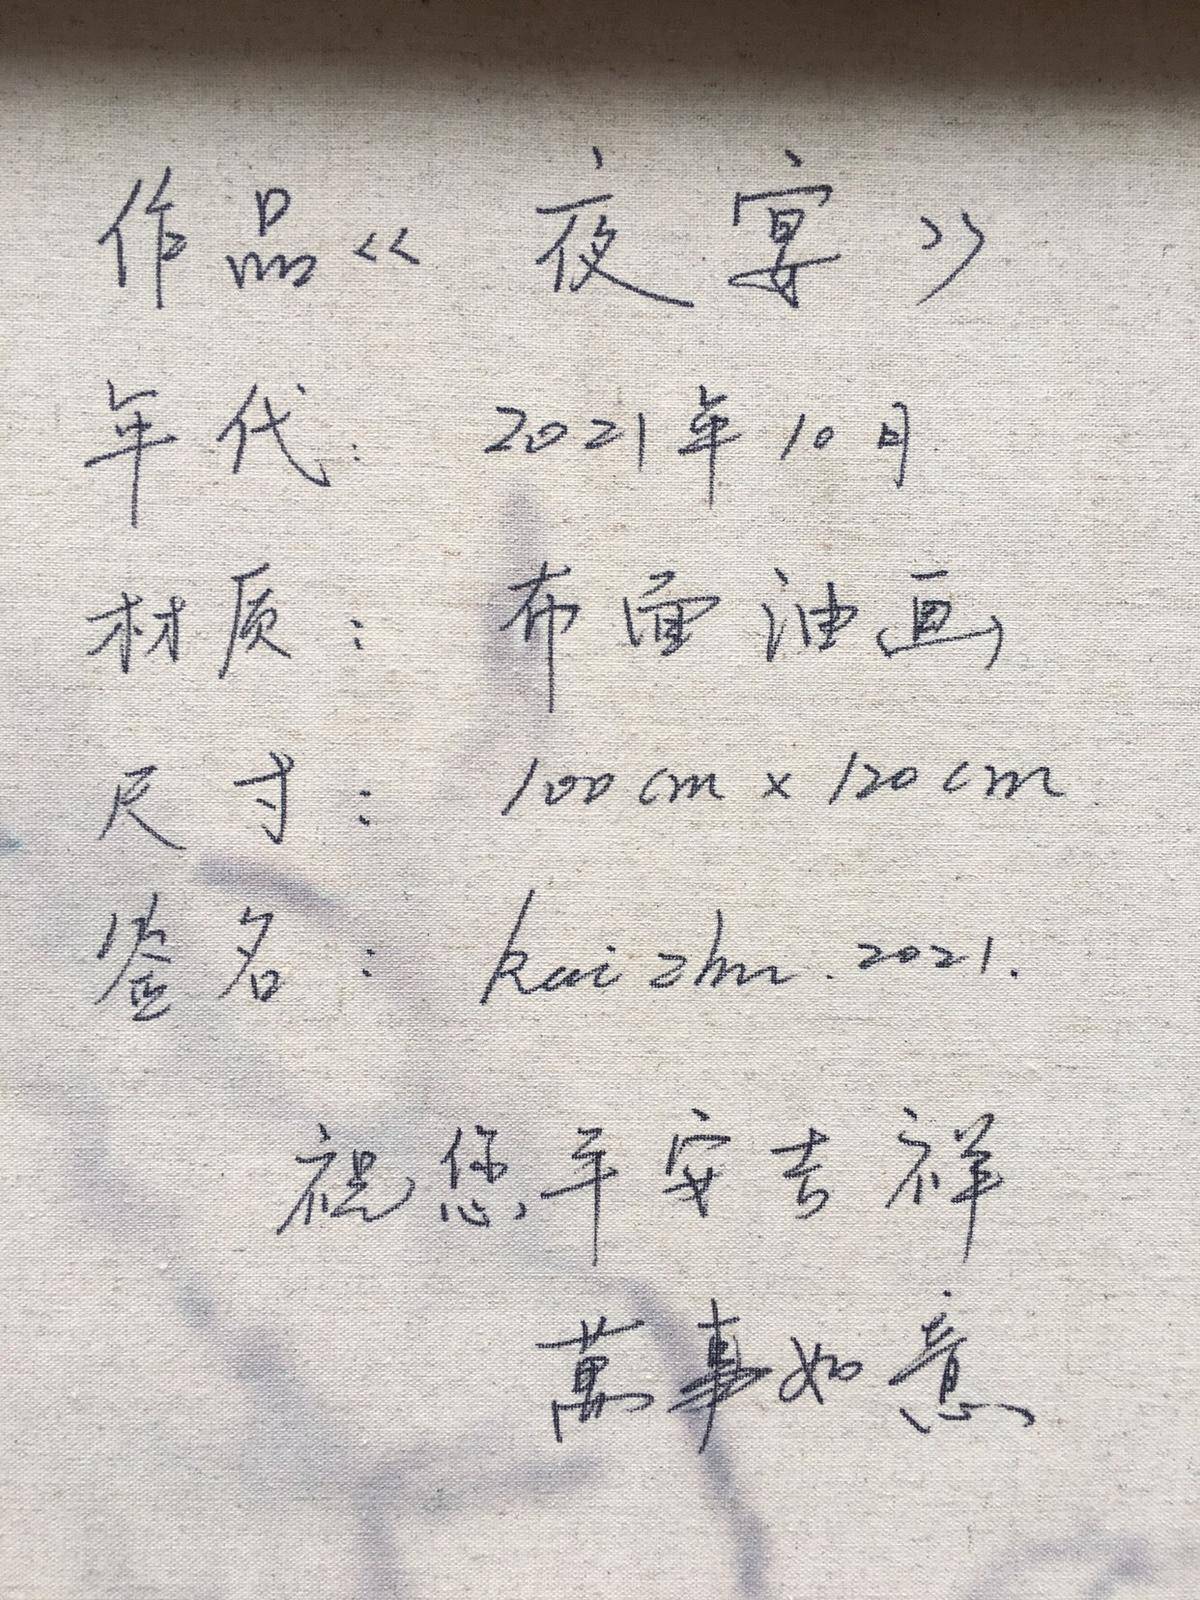 作品《夜宴》
年代: 2021年10月
材质: 布面油画
尺寸: 100cm x 120cm
签名: kai zhu. 2021.
祝您平安吉祥
萬事如意